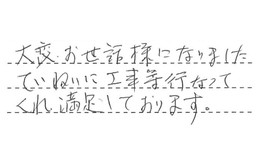 大変お世話様になりました
ていねいに工事等行なって
くれ満足しております。